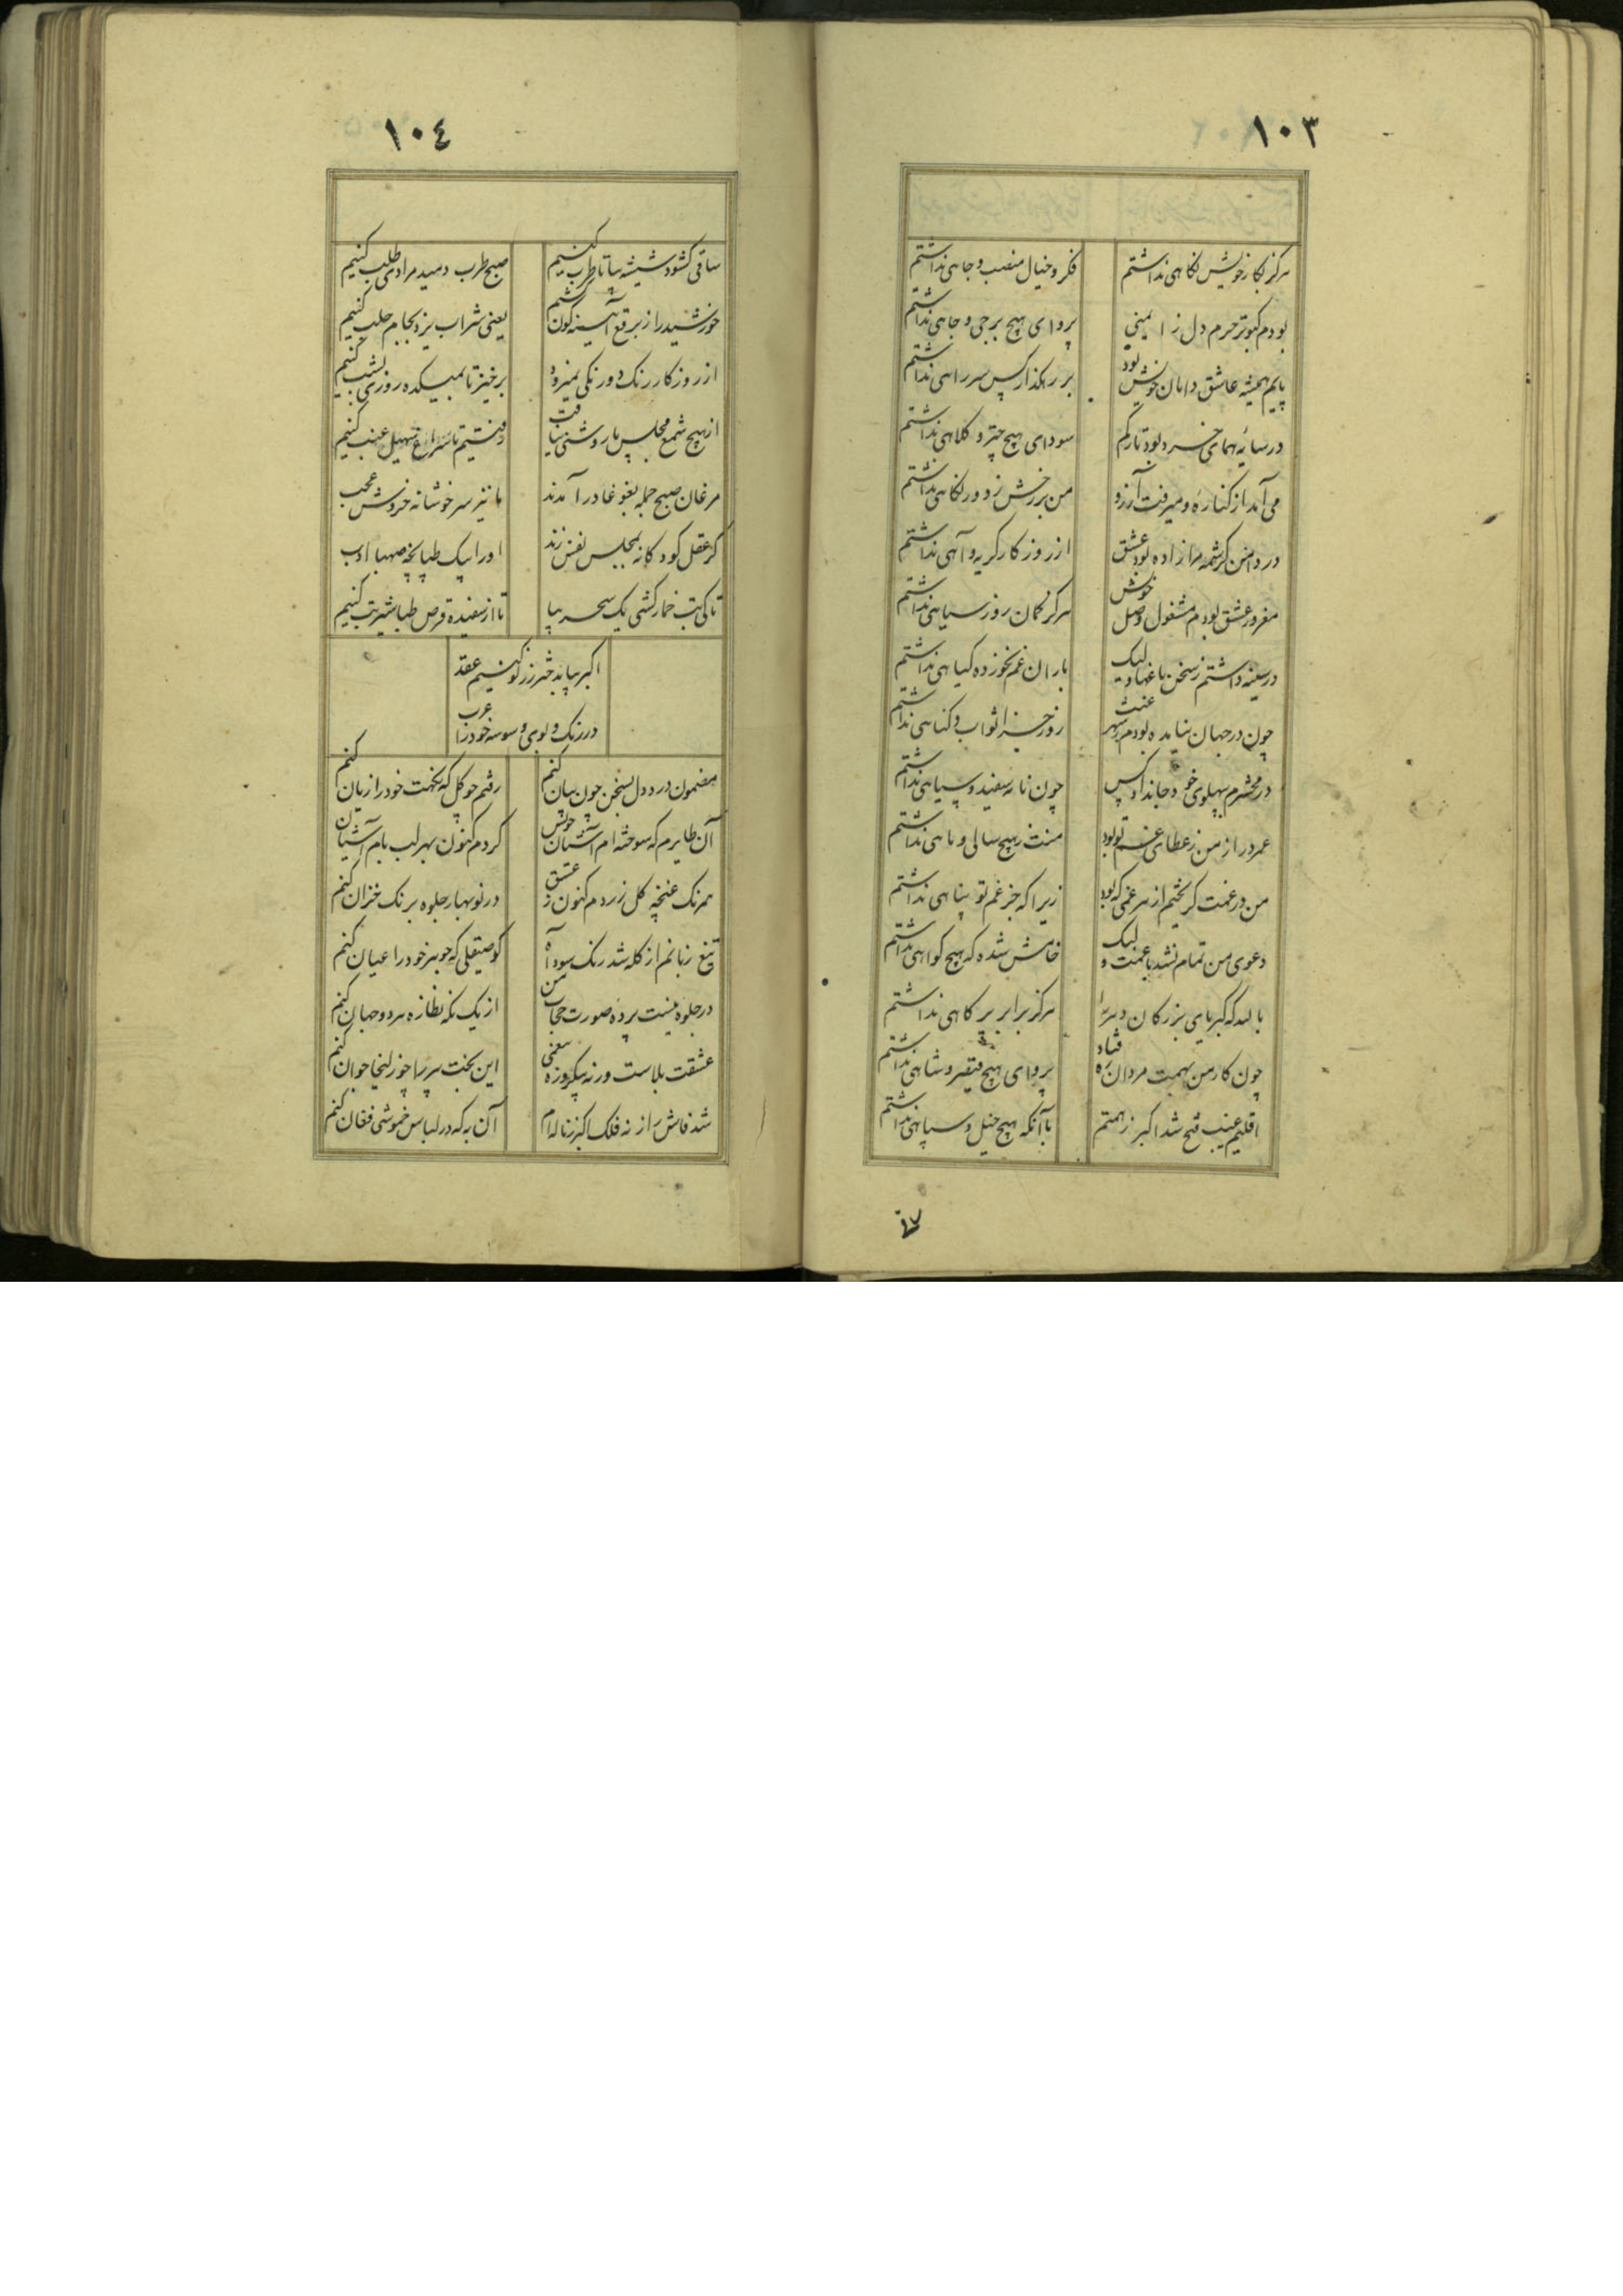 ١٠٣
هرگز بکار خویش نگاهی نداشتم فکر و خیال منصب و جاهی نداشتم
بودم کبوتر حرم دل ز ایمنی پروای هیچ برجی و جاهی نداشتم
پایم همیشه عاشق دامان خویش بود بر رهکذار کس سر راهی نداشتم
در سایهٔ همای خرد بود تارکم سودای هیچ چتر و کلاهی نداشتم
می آمد از کناره و میرفت آرزو من بر رخش ز دور نگاهی نداشتم
در دامن کرشمه مرا زاده بود عشق از روزکار کریه و آهی نداشتم
مغرور عشق بودم مشغول وصل خوش هرگز کمان روز سیاهی نداشتم
در سینه داشتم ز سخن باغها ولیک باران غم نخورده کیاهی نداشتم
چون در جهان نیامده بودم بهر عبث روز جزا ثواب و کناهی نداشتم
در محشرم پهلوی خود جا نداد کس چون نامه سفید و سیاهی نداشتم
عمر دراز من ز عطای غم تو بود منت ز هیچ سالی و ماهی نداشتم
من در غمت کریختم از هر غمی که بود زیرا که جز غم تو پناهی نداشتم
دعوی من تمام نشد با غمت ولیک خامش شده که هیچ کواهی نداشتم
بالله که کبریای بزرکان دهر را هرگز برابر پر کاهی نداشتم
چون کار من بهمت مردان ره فتاد پروای هیچ قیصر و شاهی نداشتم
اقلیم غیب فتح شد اکبر ز همتم باآنکه هیچ خیل و سپاهی نداشتم
١٠٤
ساقی کشود شیشه بیا تا طرب کنیم صبح طرب دمید مرادی طلب کنیم
خورشید را ز برقع آیینه کون کشیم یعنی شراب یزد بجام حلب کنیم
از روزکار رنک دو رنکی نمیرود برخیز تا بمیکده روزی بشب کنیم
از هیچ شمع مجلس ما روشنی نیافت رفتیم تا سراغ سهیل عنب کنیم
مرغان صبح جمله بغوغا در آمدند ما نیز سرخوشانه خروش عجب
کر عقل کودکانه بمجلس نفس زند او را بیک طپانچه صهبا ادب
تا کی تب خمار کشی یک سحر بیا تا از سفیده قرص طباشیر تب کنیم
اکبر بیا بدختر رز نو کنیم عقد
در رنک و بوی وسوسه خود را عرب
مضمون درد دل بسخن چون بیان کنم رفتم چو کل که نکهت خود را زیان کنم
آن طایرم که سوخته ام آشیان خویش کردم کنون بهر لب بام آشیان
همرنک غنچه کل زردم کنون ز عشق در نوبهار جلوه برنک خزان کنم
تیغ زبانم از کله شد رنک سود آه کو صیقلی که جوهر خود را عیان کنم
در جلوه نیست پرده صورت حجاب من از یک نکه نظاره هر دو جهان کنم
عشقت بلاست ورنه بیکروزه معنی این بخت پیر را چو زلیخا جوان کنم
شد فاش راز نه فلک اکبر ز ناله ام آن به که در لباس خموشی فغان کنم